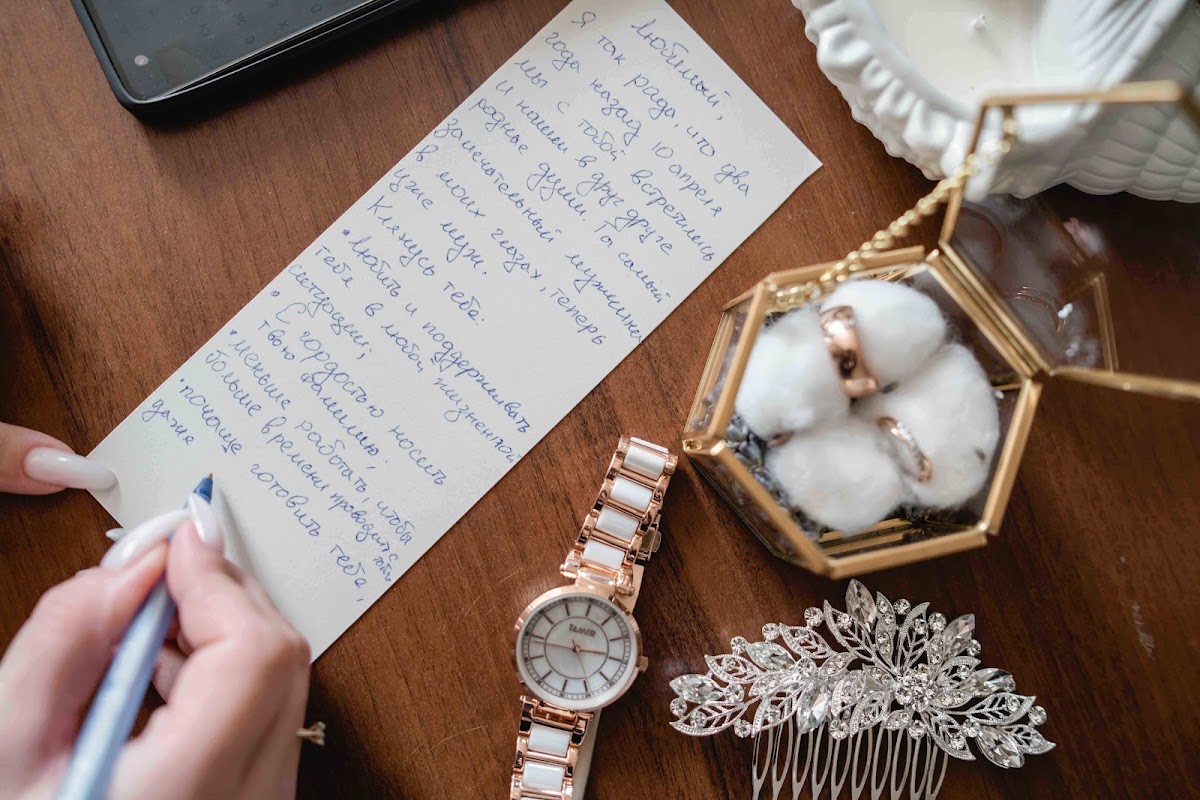 Любимый,
Я так рада, что два
года назад 10 апреля
мы с тобой встретились
и нашли в друг друге
родные души. Ты самый
замечательный мужчина
в моих глазах, теперь
уже муж.
Клянусь тебе:
• любить и поддерживать
тебя в любой жизненной
ситуации;
• С гордостью носить
твою фамилию;
• меньше работать, чтобы
больше времени проводить с
тобой
• почаще готовить тебе,
даже